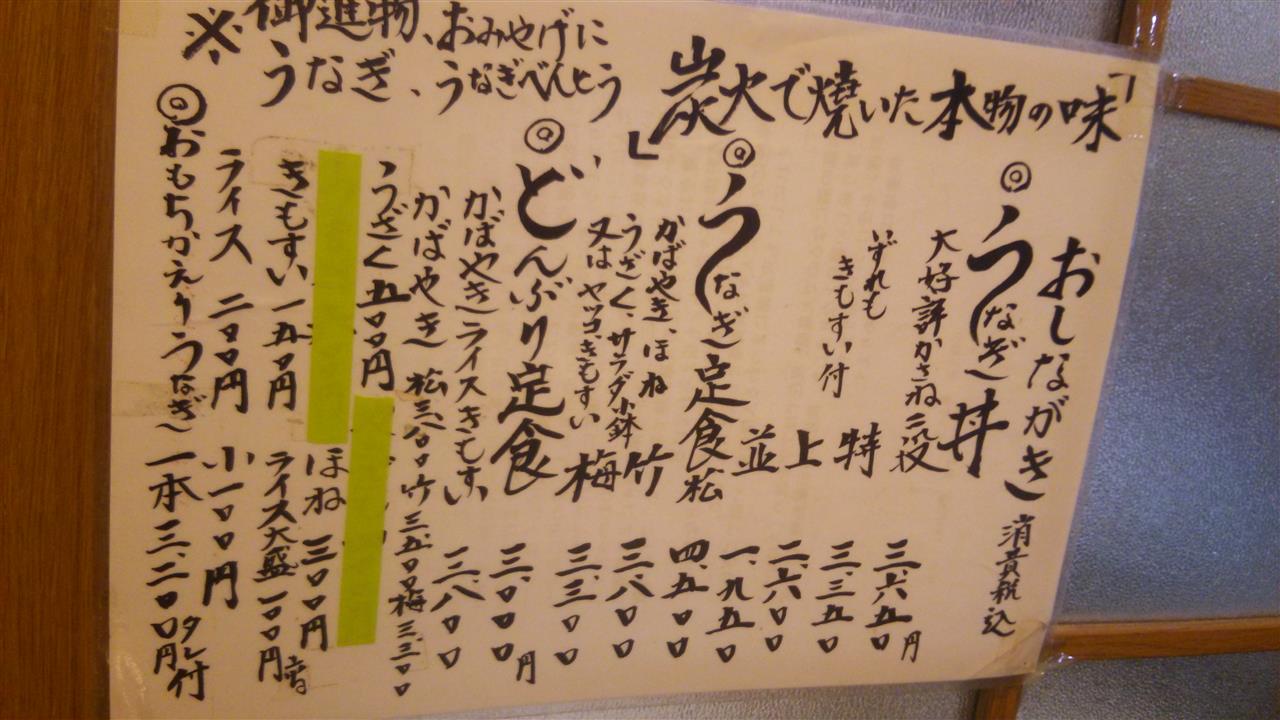 「炭火で焼いた本物の味」
おしながき 消費税込
◎うなぎ丼
大好評かさね二段 三、六五〇円
特 三、三五〇
いずれも
きもすい付
上 二、六〇〇
並 一、九五〇
◎うなぎ定食 松 四、五〇〇
かばやき、ほね
うざく、サラダ小鉢
又はヤッコきもすい
竹 三、八〇〇
梅 三、三〇〇
◎どんぶり定食 三、〇〇〇円
かばやきライスきもすい 二、八〇〇
かばやき 松 竹三、五〇〇 梅三、三〇〇
うざく五〇〇円
ほね 三〇〇円
きもすい一五〇円 ライス大盛一〇〇円増
ライス 二〇〇円 小一〇〇円
◎おもちかえりうなぎ 一本三、二〇〇円 タレ付
※御進物、おみやげに
うなぎ、うなぎべんとう